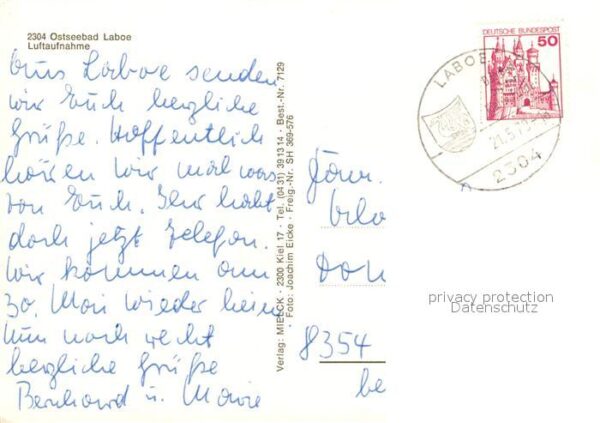 2304 Ostseebad Laboe
Luftaufnahme
Aus Laboe senden
wir Euch herzliche
Grüße. Hoffentlich
hören wir mal was
von Euch. Ihr habt
doch jetzt Telefon.
Wir kommen am
30. Mai wieder heim
Nun noch recht
herzliche Grüße
Bernhard u. Marie
Verlag: MIELCK · 2300 Kiel 17 · Tel. (04 31) 39 13 14 · Best.-Nr. 7129
· Foto: Joachim Eicke · Freig.-Nr. SH 369-576
DEUTSCHE BUNDESPOST
50
LABOE
21.5.79
2304
Fam.
8354
be
privacy protection
Datenschutz